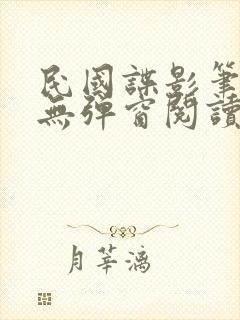 民國諜影筆
無彈窗閱讀
月華漓